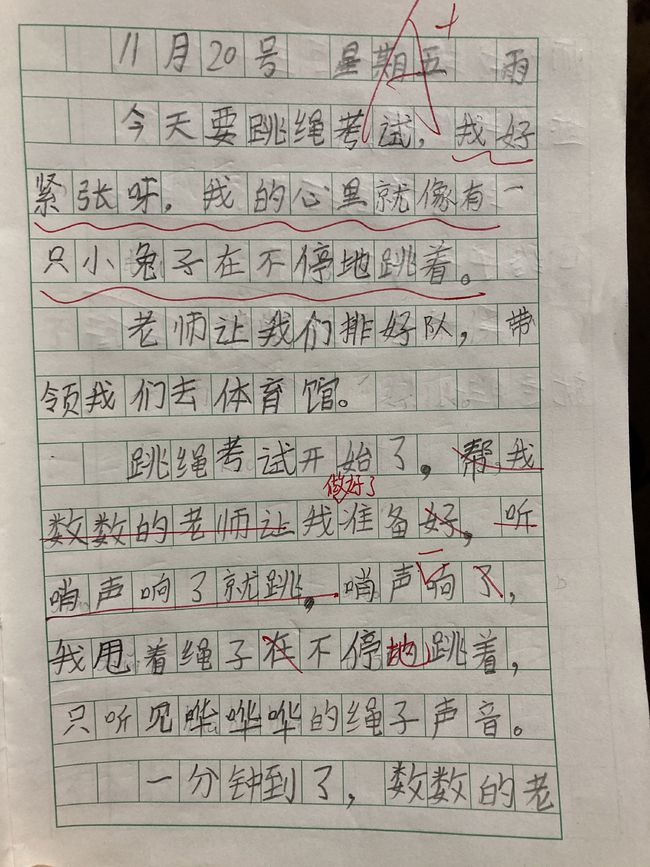 11月20号 星期五 雨
A+
今天要跳绳考试，我好
紧张呀，我的心里就像有一
只小兔子在不停地跳着。
老师让我们排好队，带
领我们去体育馆。
跳绳考试开始了，帮我
做好了
数数的老师让我准备好，听
一
哨声响了就跳。哨声响了，
我甩着绳子在不停地跳着，
只听见哗哗哗的绳子声音。
一分钟到了，数数的老